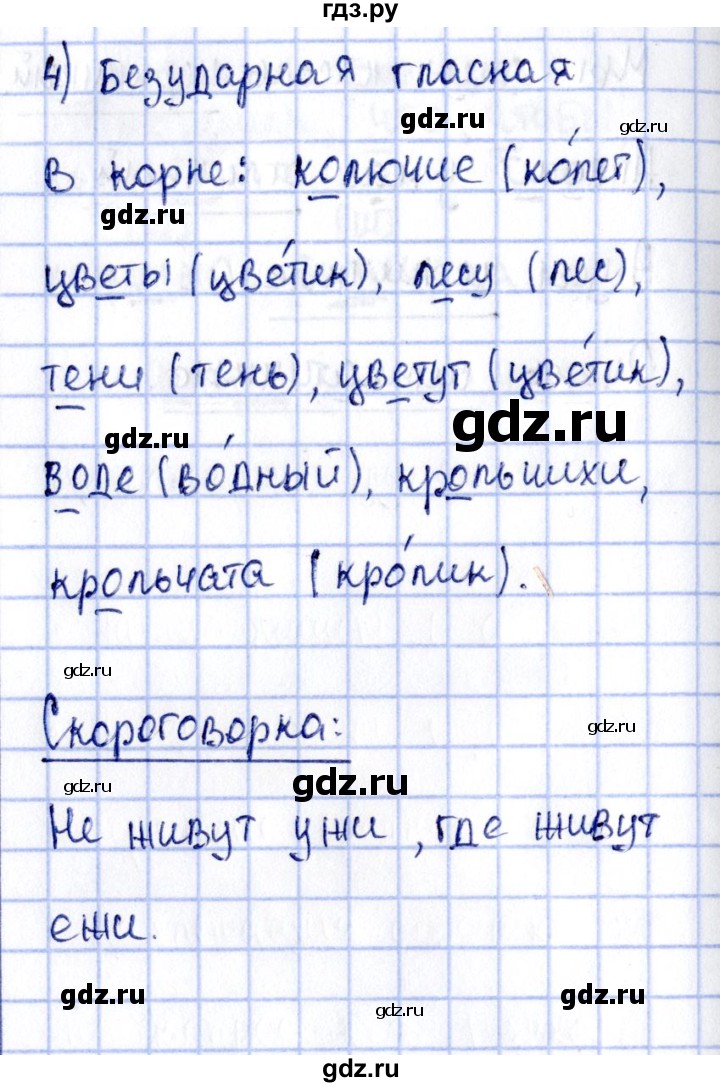 гдз.ру
4) Безударная гласная
gdz.ru gdz.ru
в корне: колючие (ко́лет),
gdz.ru gdz.ru
цветы (цве́тик), лесу (лес),
тени (тень), цветут (цве́тик),
gdz.ru gdz.ru
воде (во́дный), крольчихи,
крольчата (кро́лик).
gdz.ru
Скороговорка:
gdz.ru
gdz.ru gdz.ru
Не живут ужи, где живут
ежи.
gdz.ru gdz.ru gdz.ru
gdz.ru